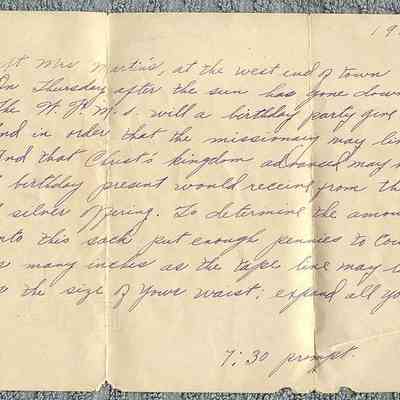 19
At Mrs Martin's, at the west end of town
On Thursday after the sun has gone down
The W. F. M. S. will a birthday party give
And in order that the missionary may li
And that Christ's kingdom advanced may
birthday present would receive from th
silver offering. To determine the amou
nto this sack put enough pennies to cou
s many inches as the tape line may
the size of your waist; expand all yo
7:30 prompt.